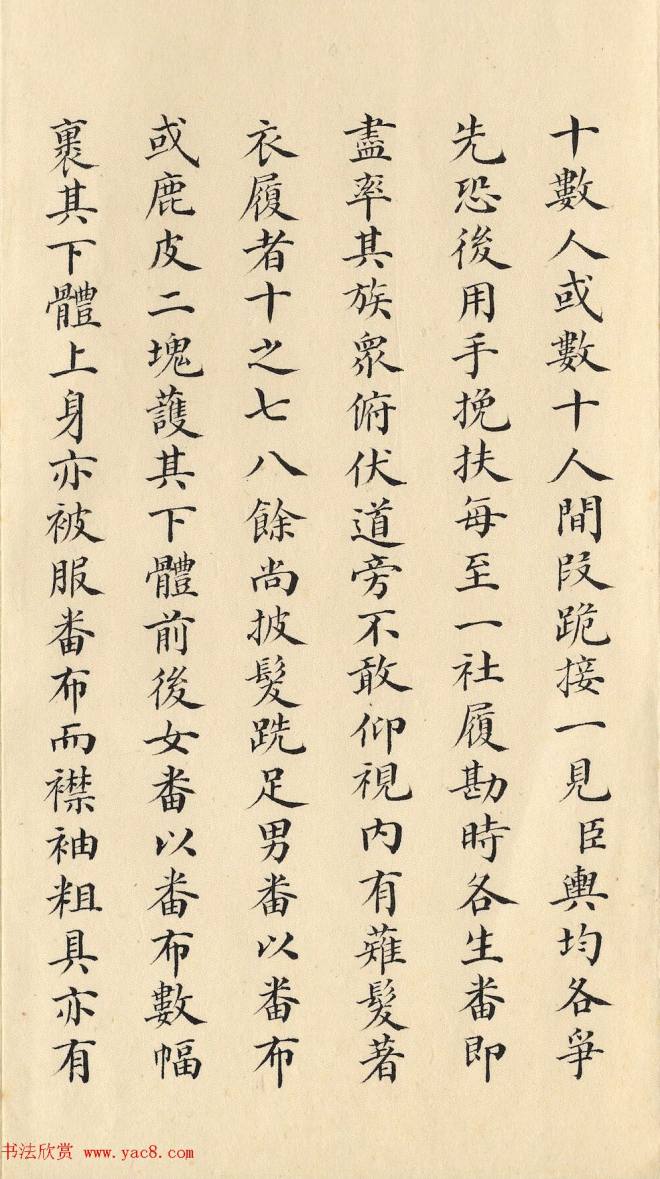 十數人或數十人間段跪接一見臣輿均各爭
先恐後用手挽扶每至一社履勘時各生番即
盡率其族衆俯伏道旁不敢仰視内有薙髮著
衣履者十之七八餘尚披髮跣足男番以番布
或鹿皮二塊護其下體前後女番以番布數幅
裹其下體上身亦被服番布而襟袖粗具亦有
书法欣赏 www.yac8.com